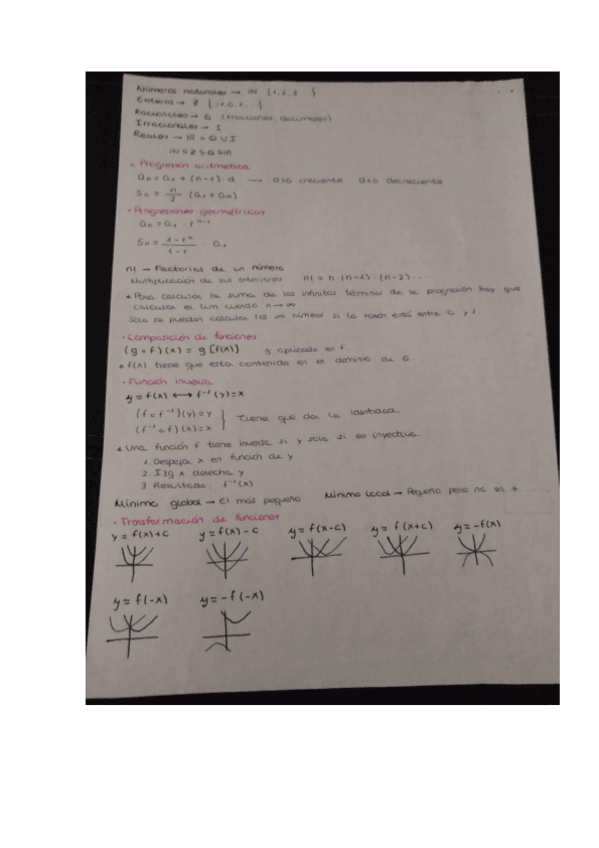 Números naturales → IN {1,2,3...}
Enteros → Z {...,0,1,...}
Racionales → Q (fracciones, decimales)
Irracionales → I
Reales → IR = Q U I
IN ⊆ Z ⊆ Q ⊆ IR
· Progresión aritmética
an = a1 + (n-1) · d → d>0 creciente d<0 decreciente
Sn = n/2 (a1 + an)
· Progresiones geométricas
an = a1 · r^n-1
Sn = 1-r^n/1-r · a1
n! → Factorial de un número
Multiplicación de sus anteriores n! = n · (n-1) · (n-2) ...
* Para calcular la suma de los infinitos términos de la progresión hay que
calcular el lim cuando n→∞
Solo se pueden calcular los ∞ números si la razón está entre 0 y 1
· Composición de funciones
(g o f)(x) = g [f(x)] g aplicada en f
* f(x) tiene que estar contenida en el dominio de g.
· Función inversa
y = f(x) ⟷ f⁻¹(y) = x
(f o f⁻¹)(y) = y
(f⁻¹ o f)(x) = x } Tiene que dar la identidad
* Una función f tiene inversa si y solo si es inyectiva
1. Despejar x en función de y
2. Izq x derecha y
3. Resultado: f⁻¹(x)
Mínimo global → El más pequeño Mínimo local → Pequeño pero no el +
· Transformación de funciones
y = f(x)+c y = f(x)-c y = f(x-c) y = f(x+c) y = -f(x)
y = f(-x) y = -f(-x)